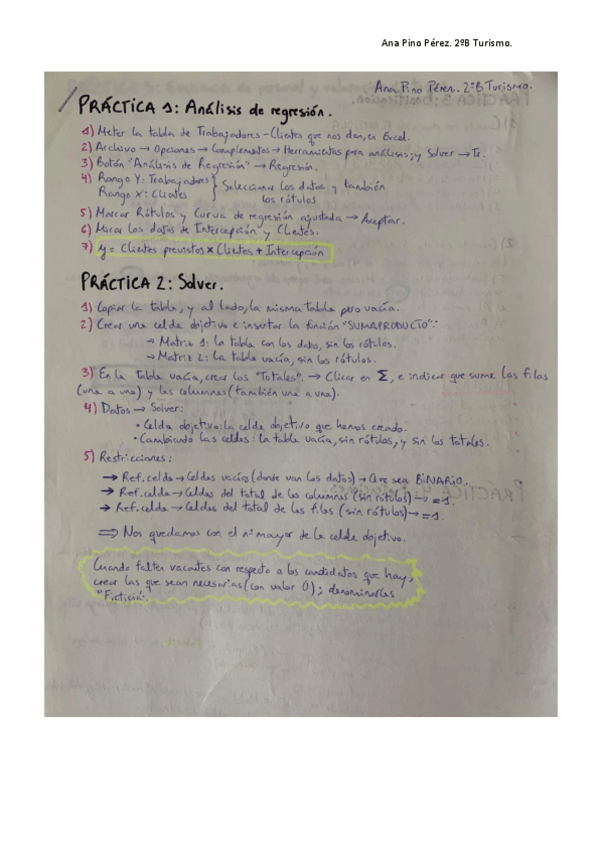 Ana Pino Pérez. 2ºB Turismo.
Ana Pino Pérez. 2ºB Turismo.
PRÁCTICA 1: Análisis de regresión.
1) Meter la tabla de Trabajadores - Clientes que nos dan, en Excel.
2) Archivo → Opciones → Complementos → Herramientas para análisis; y Solver → Ir.
3) Botón "Análisis de Regresión" → Regresión.
4) Rango Y: Trabajadores } Seleccionar los datos y también
Rango X: Clientes los rótulos
5) Marcar Rótulos y Curva de regresión ajustada → Aceptar.
6) Mirar los datos de Intercepción y Clientes.
7) y = Clientes previstos x Clientes + Intercepción
PRÁCTICA 2: Solver.
1) Copiar la tabla, y al lado, la misma tabla pero vacía.
2) Crear una celda objetivo e insertar la función "SUMAPRODUCTO":
→ Matriz 1: la tabla con los datos, sin los rótulos.
→ Matriz 2: la tabla vacía, sin los rótulos.
3) En la tabla vacía, crear los "Totales". → Clicar en Σ, e indicar que sume las filas
(una a una) y las columnas (también una a una).
4) Datos → Solver:
• Celda objetivo: la celda objetivo que hemos creado.
• Cambiando las celdas: la tabla vacía, sin rótulos, y sin los totales.
5) Restricciones:
→ Ref. celda → Celdas vacías (donde van los datos) → Que sea BINARIO.
→ Ref. celda → Celdas del total de las columnas (sin rótulos) → = 1.
→ Ref. celda → Celdas del total de las filas (sin rótulos) → = 1.
⇒ Nos quedamos con el nº mayor de la celda objetivo.
Cuando falten vacantes con respecto a los candidatos que hay,
crear las que sean necesarias (con valor 0); denominarlas
"Ficticia".